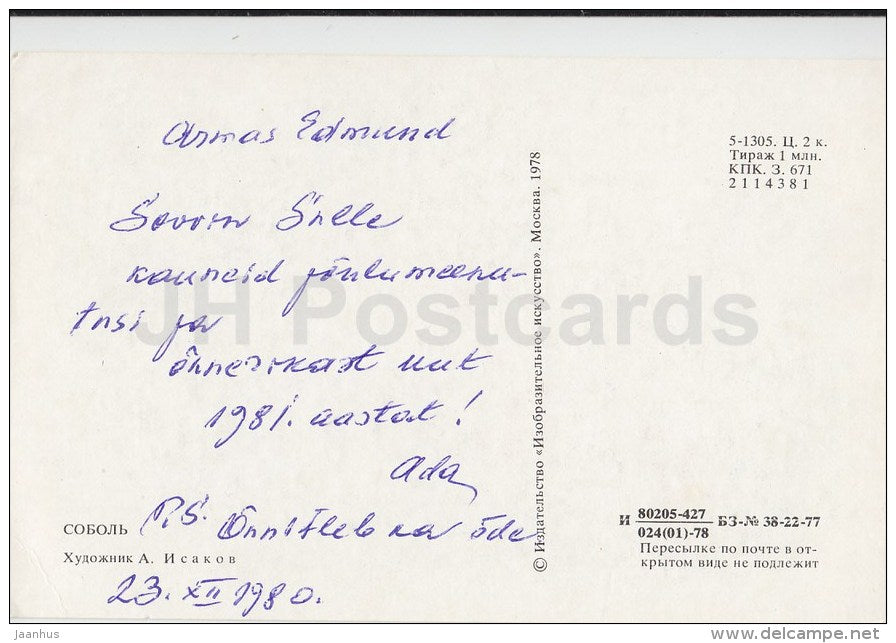 Armas Edmund
Soovin Sulle
kauneid jõulumeenu-
tusi ja
õnnerikast uut
1981. aastat!
Ada
P.S. Õnnitleb ka õde
23. XII 1980.
СОБОЛЬ
Художник А. Исаков
© Издательство «Изобразительное искусство». Москва. 1978
5-1305. Ц. 2 к.
Тираж 1 млн.
КПК. З. 671
2114381
И 80205-427 БЗ-№ 38-22-77
024(01)-78
Пересылке по почте в от-
крытом виде не подлежит
JH Postcards
jaanhus
delcampe.net